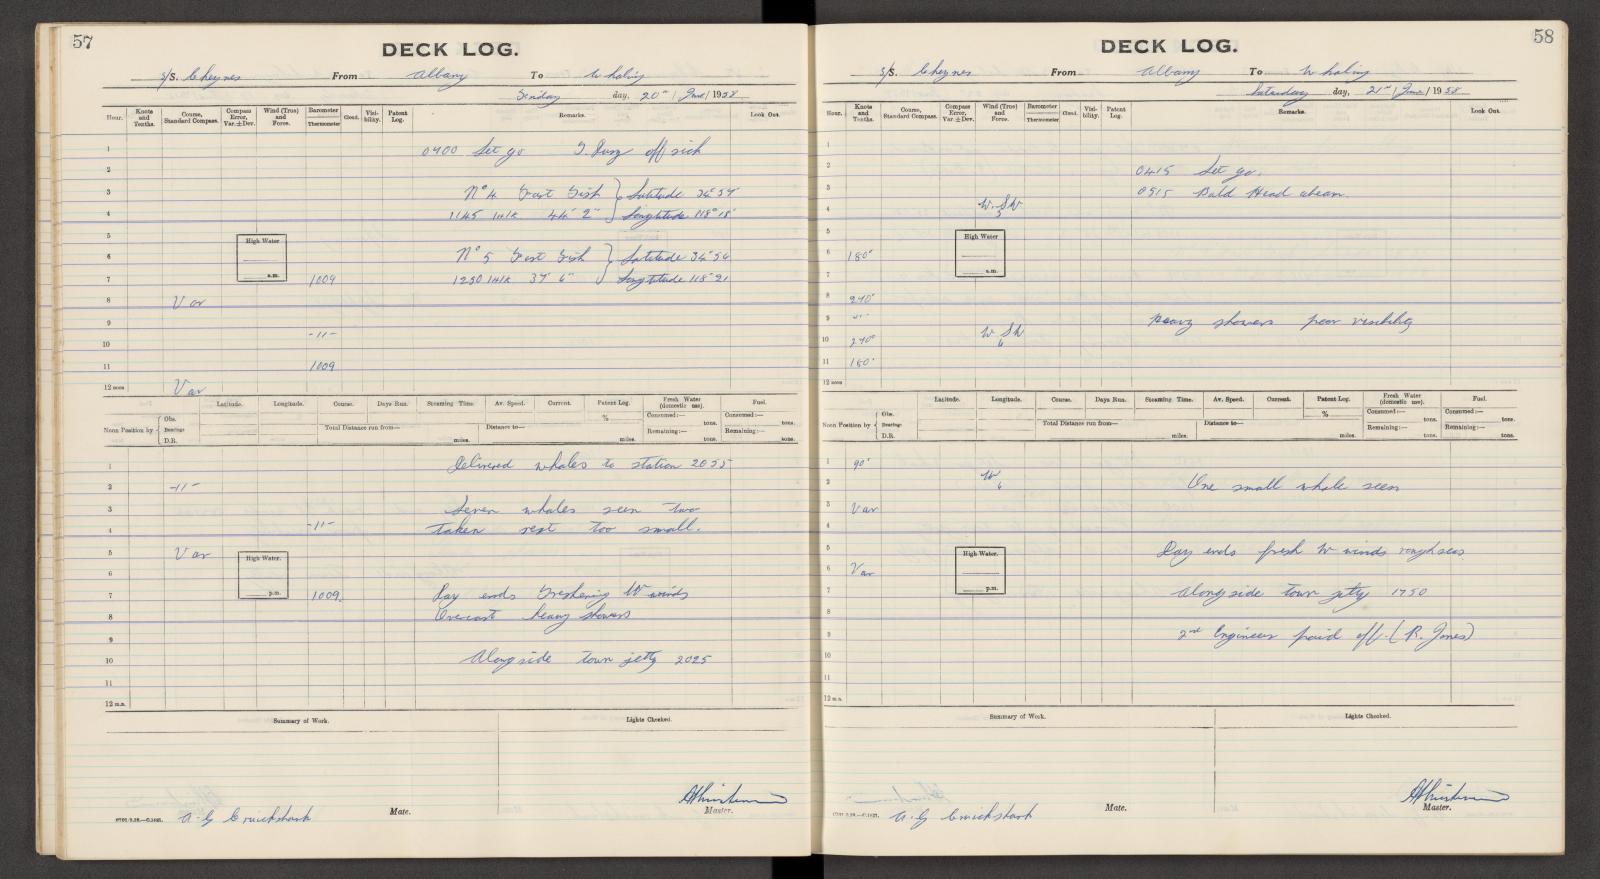 57
DECK LOG.
S/S. Cheynes From Albany To Whaling
day, 20th / June / 1958
Hour. Knots and Tenths. Course, Standard Compass. Compass Error, Var. ± Dev. Wind (True) and Force. Barometer Thermometer Cloud. Visibility. Patent Log. Remarks. Look Out.
1 0400 Set go off sick
2
3 No 4 Fast Fish } Latitude
4 1145 44' 2" } Longtitude 118° 18'
5
High Water
6 No 5 Fast Fish } Latitude 34° 54
a.m.
7 1009 1250 37' 6" } Longtitude 118° 21
8 Var
9
-11-
10
11 1009
12 noon Var
Latitude. Longitude. Course. Days Run. Steaming Time. Av. Speed. Current. Patent Log. Fresh Water (domestic use). Fuel.
Noon Position by { Obs. Bearings D.R. % Consumed:— tons. Consumed:— tons.
Total Distance run from— miles. Distance to— miles. Remaining:— tons. Remaining:— tons.
1 Delivered whales to station 2055
2 -11-
3 Seven whales seen two
4 -11- taken rest too small.
5 Var
High Water.
6
p.m.
7 1009. Day ends freshening W winds
8 Overcast heavy showers
9
10 Alongside town jetty 2025
11
12 m.n.
Summary of Work. Lights Checked.
A. G Cruickshank Mate. Master.
58
DECK LOG.
S/S. Cheynes From Albany To Whaling
Saturday day, 21st / June / 1958
Hour. Knots and Tenths. Course, Standard Compass. Compass Error, Var. ± Dev. Wind (True) and Force. Barometer Thermometer Cloud. Visibility. Patent Log. Remarks. Look Out.
1
2 0415 Set go.
3 0515 Bald Head abeam.
4 W. SW 5
5
High Water
6 180°
a.m.
7
8 270°
9 -11- Heavy showers poor visibility
10 270° W SW 6
11 180°
12 noon
Latitude. Longitude. Course. Days Run. Steaming Time. Av. Speed. Current. Patent Log. Fresh Water (domestic use). Fuel.
Noon Position by { Obs. Bearings D.R. % Consumed:— tons. Consumed:— tons.
Total Distance run from— miles. Distance to— miles. Remaining:— tons. Remaining:— tons.
1 90°
2 W 6 One small whale seen
3 Var
4
5 Day ends fresh W winds rough seas
High Water.
6 Var
p.m.
7 Alongside town jetty 1750
8
9 2nd Engineer paid off. (R. Jones)
10
11
12 m.n.
Summary of Work. Lights Checked.
A. G Cruickshank Mate. Master.